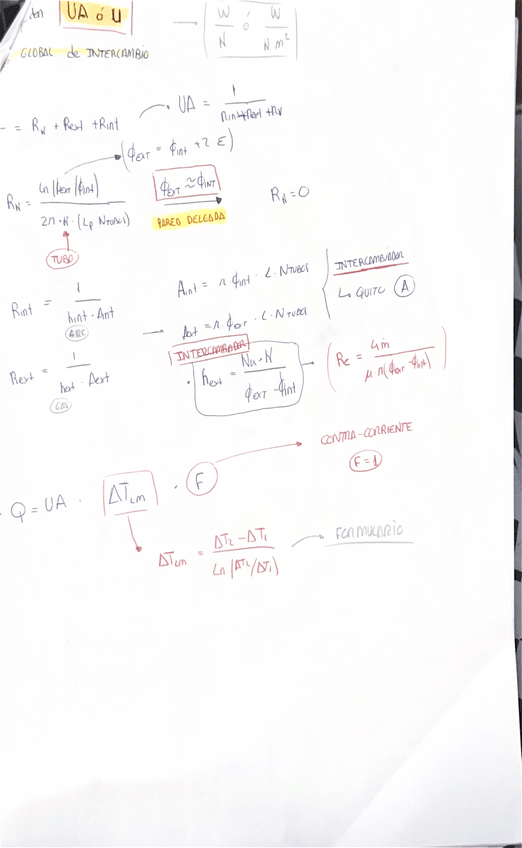 UA ó U → W/N ó W/N m²
GLOBAL de INTERCAMBIO
= R_N + R_ext + R_int UA = 1/(R_int + R_ext + R_N)
(ϕ_EXT = ϕ_int + 2 ε)
R_N = ln(ϕ_ext/ϕ_int) / (2π · K · (L_p N_TUBOS)) ϕ_EXT ≈ ϕ_INT → R_N = 0
PARED DELGADA
TUBO
R_int = 1/(h_int · A_int) → A_int = π · ϕ_int · L · N_TUBOS INTERCAMBIADOR
↳ QUITO A
AIRE
A_ext = π · ϕ_ext · L · N_TUBOS
INTERCAMBIADOR
R_ext = 1/(h_ext · A_ext) · h_ext = Nu · K / (ϕ_EXT - ϕ_int) → (Re = 4ṁ / (μ π (ϕ_ext - ϕ_int)))
Q = UA · ΔT_LM · F → CONTRA-CORRIENTE
F = 1
ΔT_LM = (ΔT₂ - ΔT₁) / Ln(ΔT₂/ΔT₁) → FORMULARIO